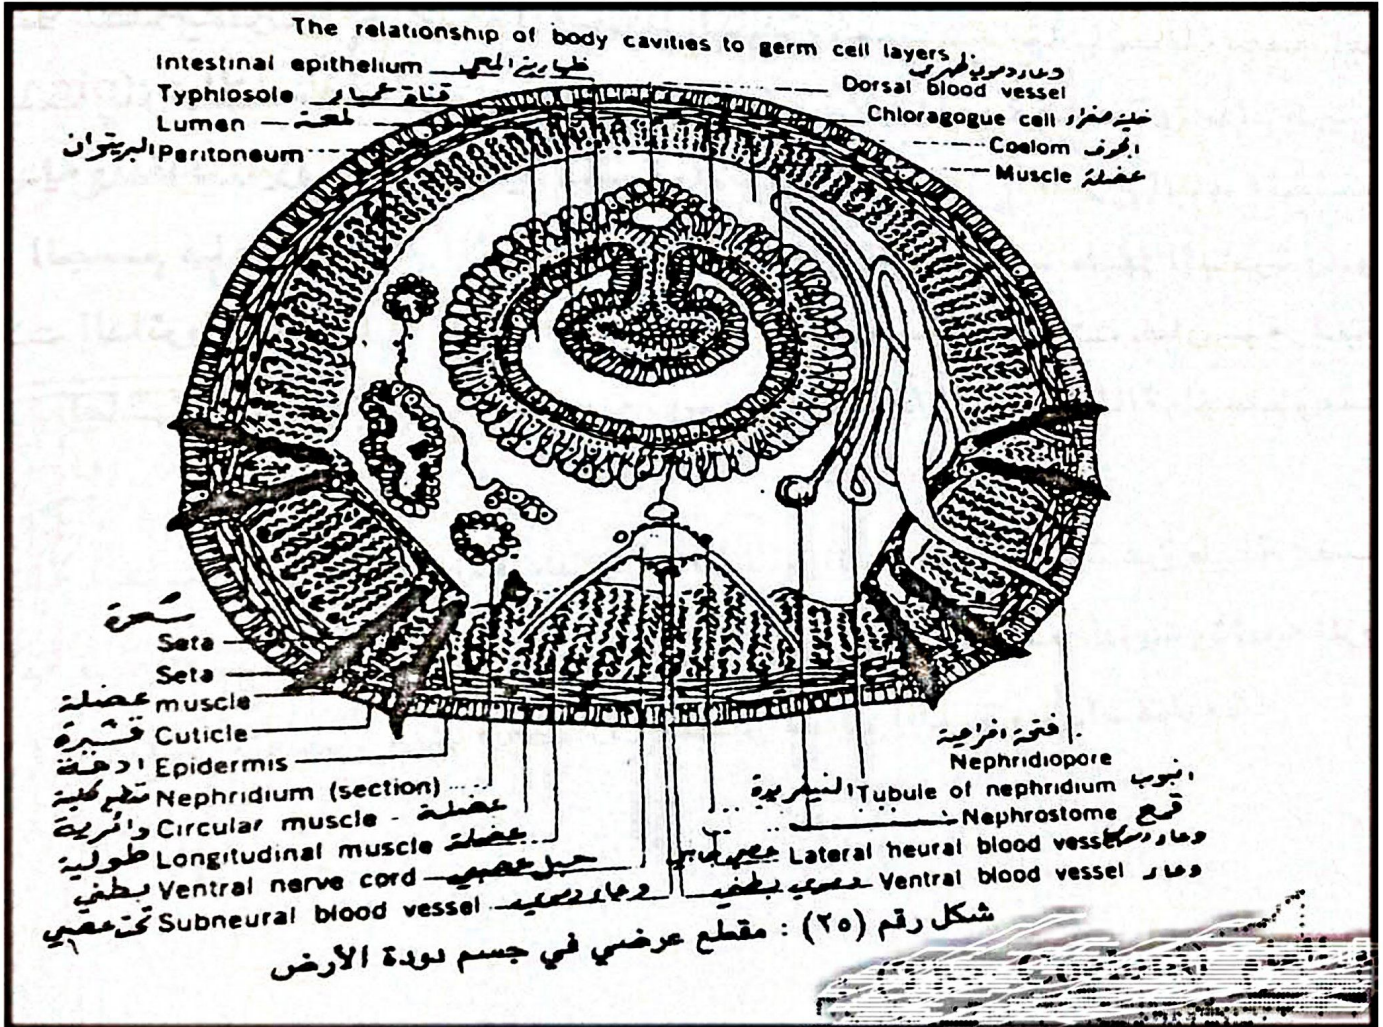 The relationship of body cavities to germ cell layers
Intestinal epithelium طهارية المعي
Typhlosole قناة عمياء
Lumen لمعة
Peritoneum البريتوان
وعاء دموي ظهري
Dorsal blood vessel
Chloragogue cell خلية صفراء
Coelom الجوف
Muscle عضلة
شعرة
Seta
Seta
muscle عضلة
Cuticle قشيرة
Epidermis ادمة
Nephridium (section) مقطع كلية
Circular muscle عضلة دائرية
Longitudinal muscle عضلة طولية
Ventral nerve cord حبل عصبي بطني
Subneural blood vessel وعاء دموي تحت عصبي
فتحة اخراجية
Nephridiopore
Tubule of nephridium انبوب النيفريدة
Nephrostome قمع
Lateral neural blood vessel وعاء دموي عصبي جانبي
Ventral blood vessel وعاء دموي بطني
شكل رقم (٢٥) : مقطع عرضي في جسم دودة الأرض